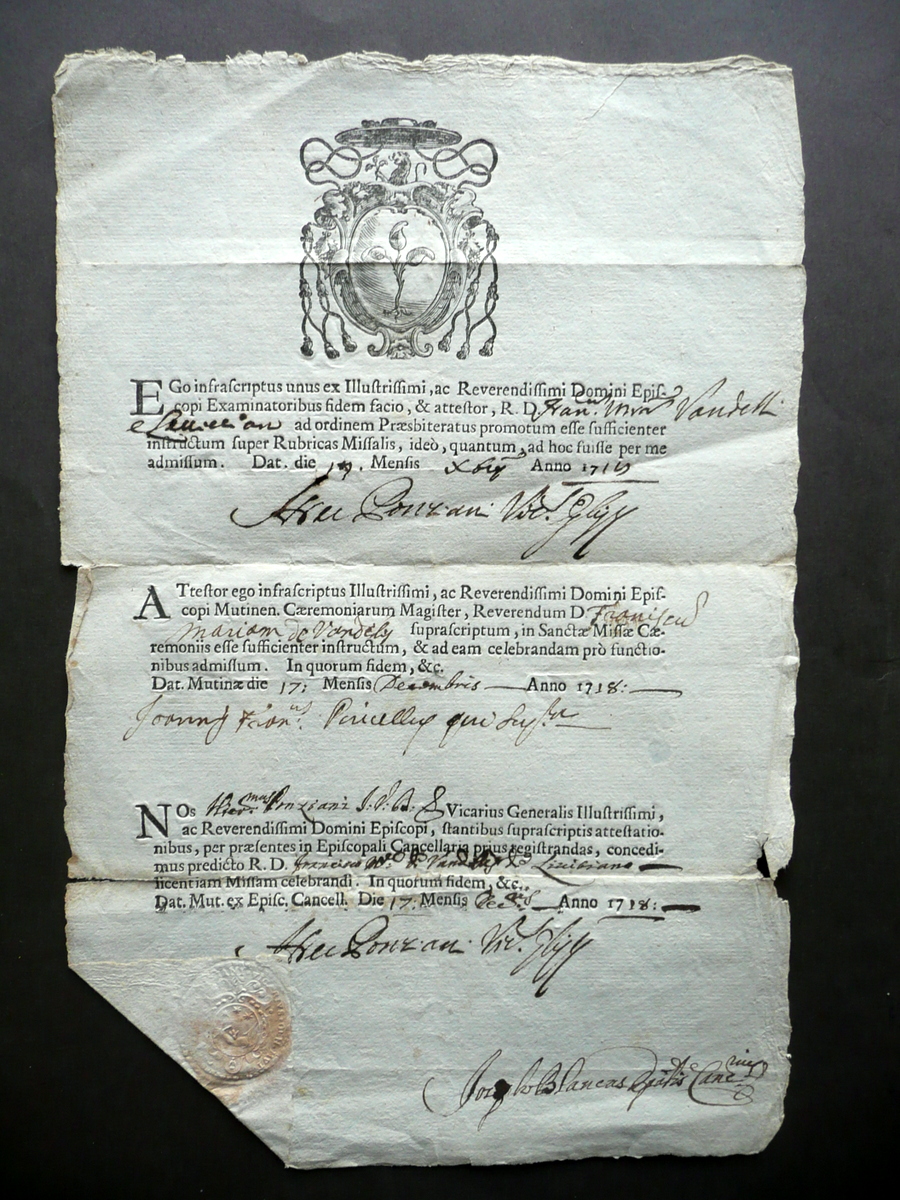 EGo infrascriptus unus ex Illustrissimi, ac Reverendissimi Domini Epis-
copi Examinatoribus fidem facio, & attestor, R. D. Fran.
ad ordinem Præsbiteratus promotum esse sufficienter
instructum super Rubricas Missalis, ideò, quantum, ad hoc fuisse per me
admissum. Dat. die Mensis Xbris Anno
Ponziani Vic.s Glis
ATtestor ego infrascriptus Illustrissimi, ac Reverendissimi Domini Epis-
copi Mutinen. Cæremoniarum Magister, Reverendum D.
Mariam de Vandely suprascriptum, in Sanctæ Missæ Cæ-
remoniis esse sufficienter instructum, & ad eam celebrandam prò functio-
nibus admissum. In quorum fidem, &c.
Dat. Mutinæ die 17: Mensis Decembris Anno 1718:
NOs Hier.mus Ponziani Vicarius Generalis Illustrissimi,
ac Reverendissimi Domini Episcopi, stantibus suprascriptis attestatio-
nibus, per præsentes in Episcopali Cancellaria prius registrandas, concedi-
mus predicto R. D. Francisco
licentiam Missam celebrandi. In quorum fidem, &c.
Dat. Mut. ex Episc, Cancell. Die 17: Mensis Anno 1718:
Ponziani Vic.s Glis